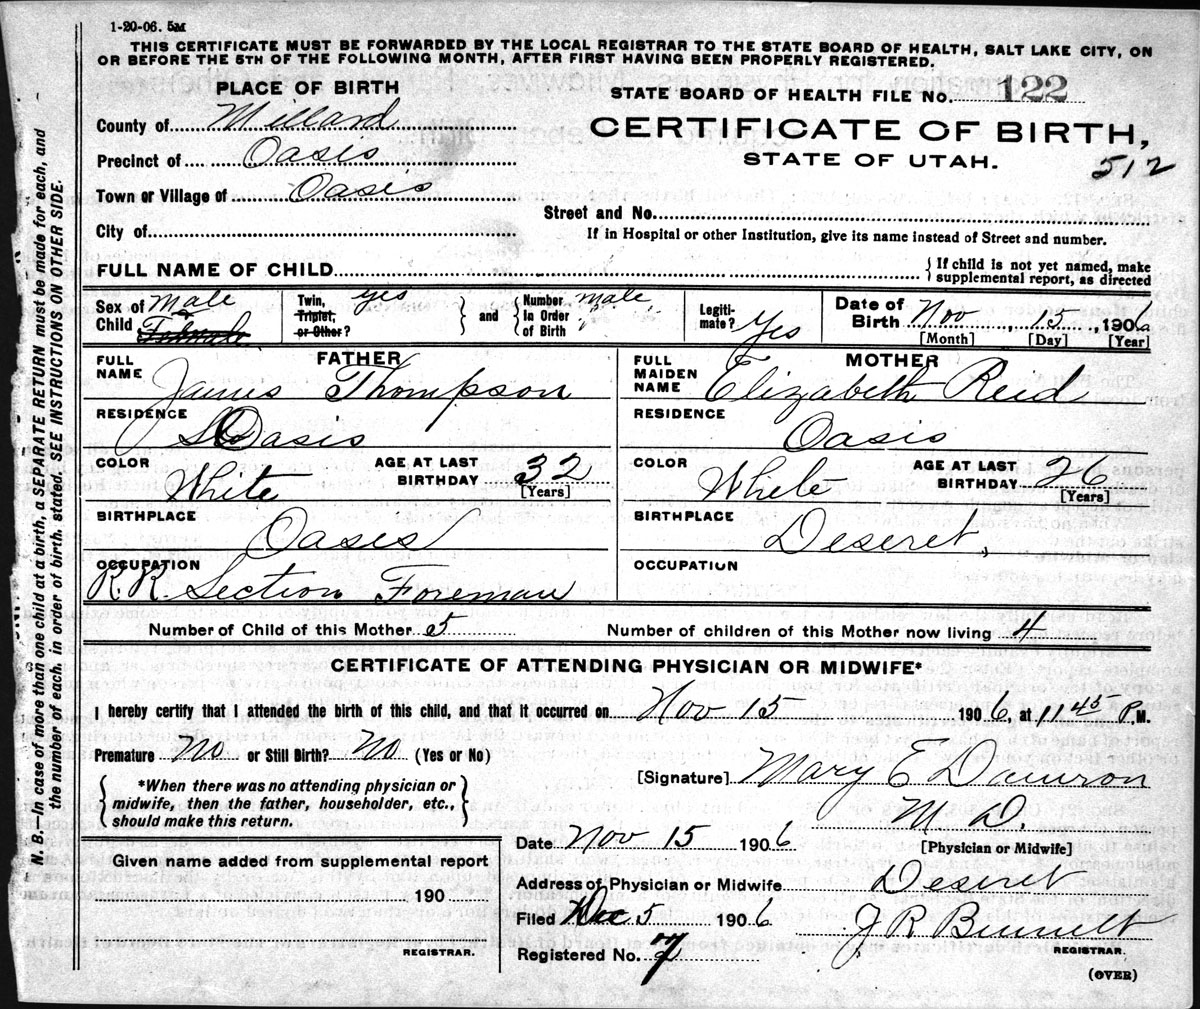 1-20-06. 5M
THIS CERTIFICATE MUST BE FORWARDED BY THE LOCAL REGISTRAR TO THE STATE BOARD OF HEALTH, SALT LAKE CITY, ON
OR BEFORE THE 5TH OF THE FOLLOWING MONTH, AFTER FIRST HAVING BEEN PROPERLY REGISTERED.
PLACE OF BIRTH
STATE BOARD OF HEALTH FILE No. 122
County of Millard
CERTIFICATE OF BIRTH,
Precinct of Oasis
STATE OF UTAH.
512
Town or Village of Oasis
Street and No.
City of
If in Hospital or other Institution, give its name instead of Street and number.
FULL NAME OF CHILD
{If child is not yet named, make
supplemental report, as directed
Sex of Male
Child Female
Twin, yes
Triplet,
or Other?
} and {
Number male
In Order " "
of Birth
Legiti-
mate? Yes
Date of
Birth Nov, 13, 1906
[Month] [Day] [Year]
FATHER
FULL
NAME James Thompson
MOTHER
FULL
MAIDEN
NAME Elizabeth Reid
RESIDENCE
Oasis
RESIDENCE
Oasis
COLOR
White
AGE AT LAST
BIRTHDAY 32
[Years]
COLOR
White
AGE AT LAST
BIRTHDAY 26
[Years]
BIRTHPLACE
Oasis
BIRTHPLACE
Deseret,
OCCUPATION
R.R. Section Foreman
OCCUPATION
Number of Child of this Mother 5
Number of children of this Mother now living 4
CERTIFICATE OF ATTENDING PHYSICIAN OR MIDWIFE*
I hereby certify that I attended the birth of this child, and that it occurred on Nov 13 1906, at 11 45 P.M.
Premature No or Still Birth? No (Yes or No)
{ *When there was no attending physician or
midwife, then the father, householder, etc.,
should make this return. }
[Signature] Mary E Damron
M D.
[Physician or Midwife]
Date Nov 15 1906
Given name added from supplemental report
190
REGISTRAR.
Address of Physician or Midwife Deseret
Filed Dec 5 1906 J R Bennett
REGISTRAR.
Registered No. 7
(OVER)
N. B.—In case of more than one child at a birth, a SEPARATE RETURN must be made for each, and
the number of each, in order of birth, stated. SEE INSTRUCTIONS ON OTHER SIDE.